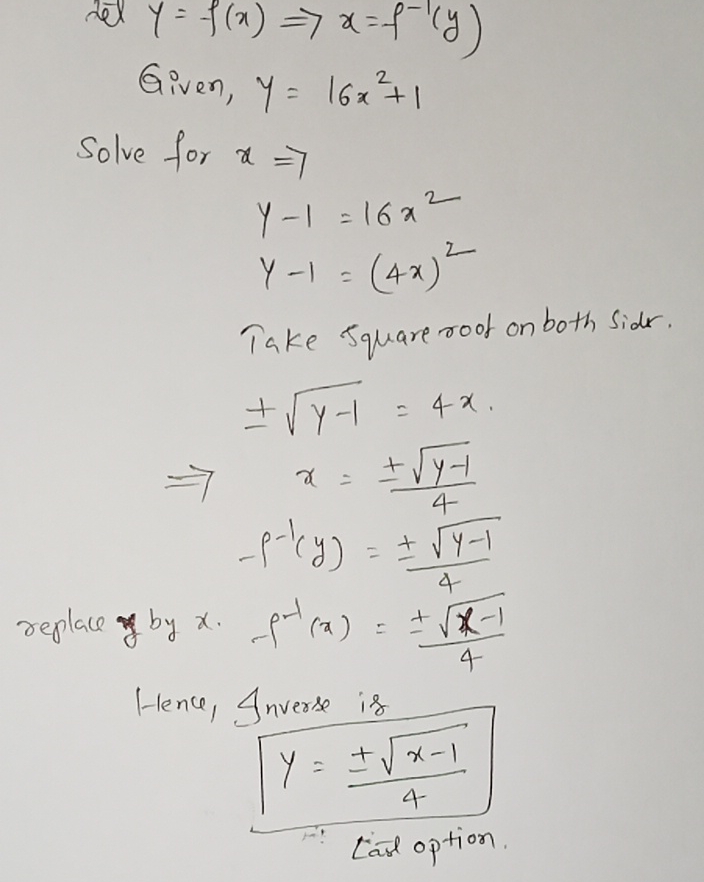 Let y = f(x) ⇒ x = f⁻¹(y)
Given, y = 16x² + 1
Solve for x ⇒
y - 1 = 16x²
y - 1 = (4x)²
Take square root on both side.
± √(y-1) = 4x.
⇒ x = ± √(y-1) / 4
f⁻¹(y) = ± √(y-1) / 4
replace y by x. f⁻¹(x) = ± √(x-1) / 4
Hence, Inverse is
y = ± √(x-1) / 4
Last option.